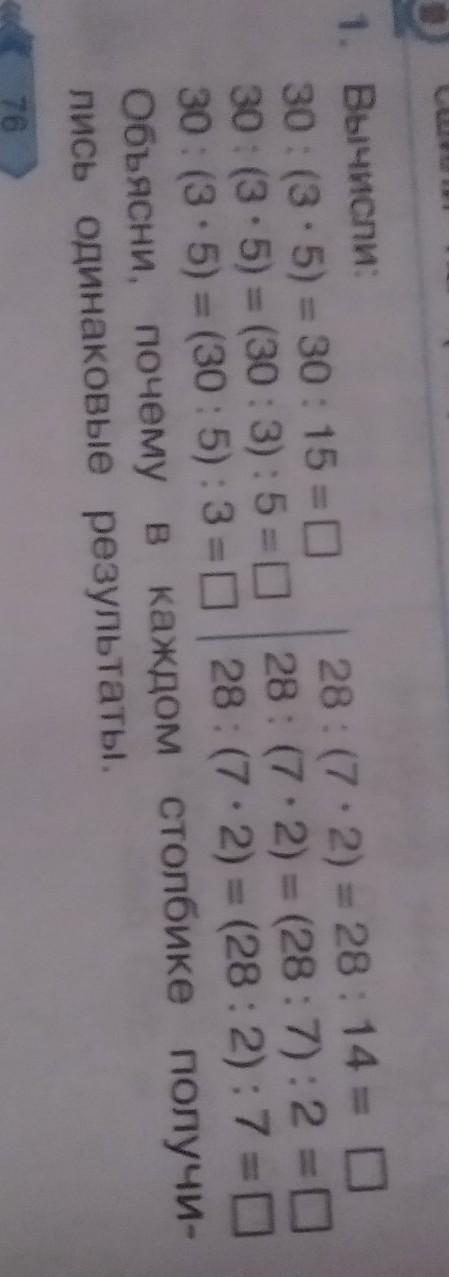 1. Вычисли:
30 : (3 · 5) = 30 : 15 = □ 28 : (7 · 2) = 28 : 14 = □
30 : (3 · 5) = (30 : 3) : 5 = □ 28 : (7 · 2) = (28 : 7) : 2 = □
30 : (3 · 5) = (30 : 5) : 3 = □ 28 : (7 · 2) = (28 : 2) : 7 = □
Объясни, почему в каждом столбике получи-
лись одинаковые результаты.
76